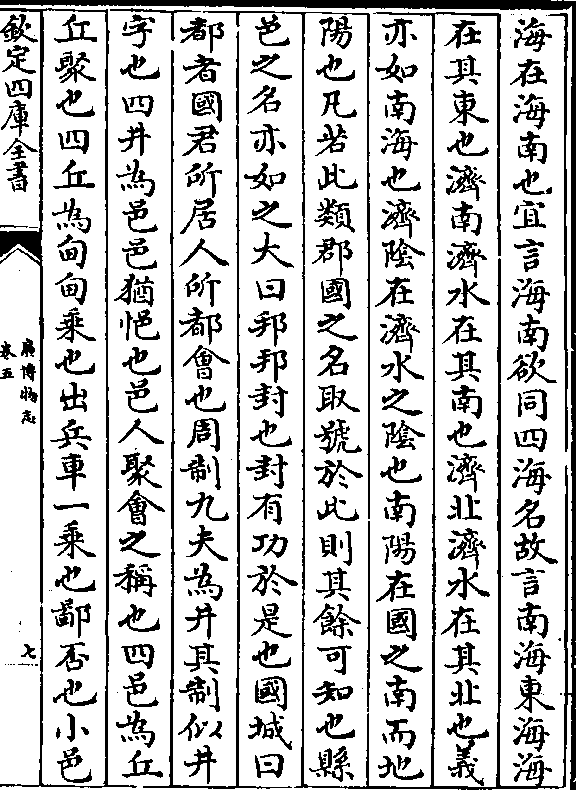 海在海南也宜言海南欲同四海名故言南海東海海
在其東也濟南濟水在其南也濟北濟水在其北也義
亦如南海也濟陰在濟水之陰也南陽在國之南而地
陽也凡若此類郡國之名取號於此則其餘可知也縣
邑之名亦如之大曰邦邦封也封有功於是也國城曰
都者國君所居人所都會也周制九夫為井其制似井
字也四井為邑邑猶悒也邑人聚會之稱也四邑為丘
丘聚也四丘為甸甸乘也出兵車一乘也鄙否也小邑
欽定四庫全書
廣博物志
卷五
七